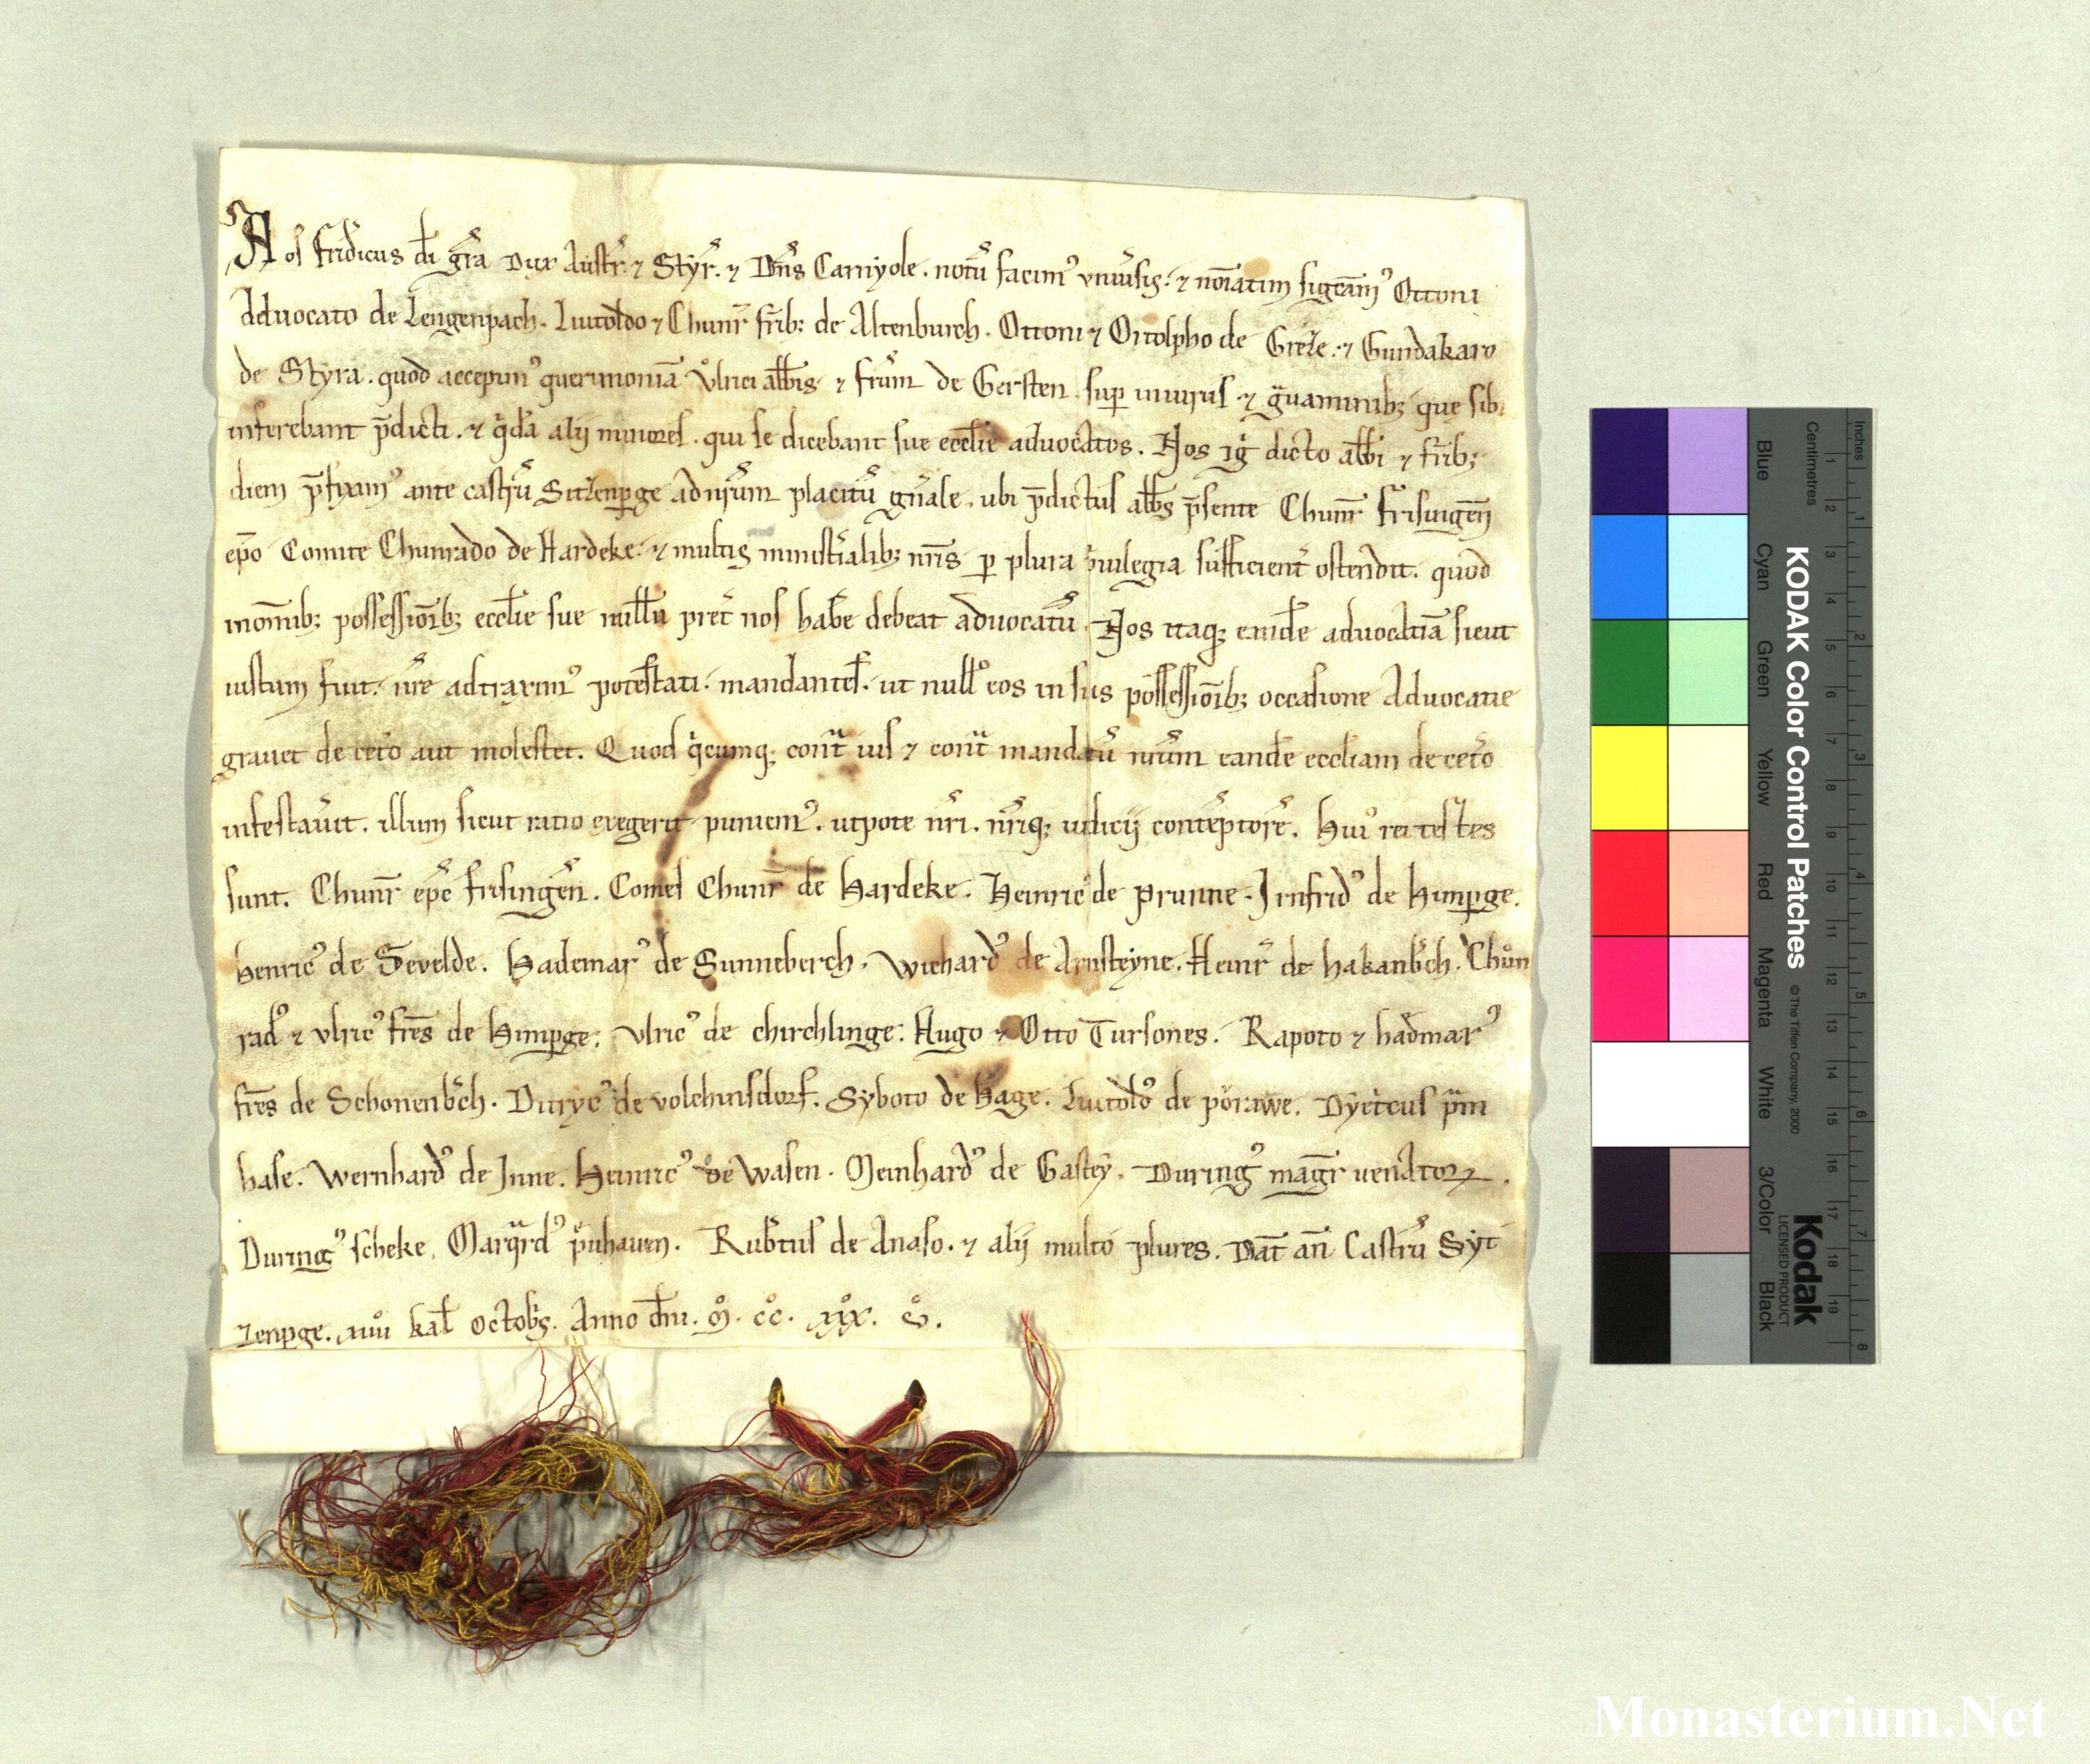 Nos fridicus di gra Dux Austr. ⁊ Styr. ⁊ Dns Carnyole. notu facim⁹ vniusis. ⁊ noiatim sigcam⁹ Ottoni
Aduocato de Lengenpach. Liutoldo ⁊ Chunr frib; de Altenburch. Ottoni ⁊ Ortolpho de Greze. ⁊ Gundakaro
de Styra. quod accepim⁹ querimonia Vlrici abbis ⁊ frum de Gersten sup iniuriis ⁊ guaminib; que sibi
inferebant pdicti. ⁊ qda alij minores. qui se dicebant sue ecclie aduocatos. Nos ig dicto abbi ⁊ frib;
diem pfixim⁹ ante castru Sitzenpge ad nrum placitu gnale. ubi pdictus abbs psente Chunr frisingen
epo Comite Chunrado de Hardeke. ⁊ multis ministialib; nris p plura puilegia sufficient ostendit. quod
in omib; possessioib; ecclie sue nullu pret nos habe debeat aduocatu. Nos itaq; eande aduocatia sicut
iustum fuit. nre adtraxim⁹ potestati. mandantes. ut null⁹ eos in suis possessioib; occasione Aduocatie
grauet de ceto aut molestet. Quod qcumq; cont ius ⁊ cont mandatu nrum eande eccliam de cetero
infestauit. illum sicut ratio exegerit puniem⁹. utpote nri. nriq; iudicij conteptore. Hui⁹ rei testes
sunt. Chunr epc frisingen. Comes Chunr de Hardeke. Heinric de Prunne. Irnfrid⁹ de Himpge.
Henric⁹ de Sevelde. Hademar⁹ de Sunneberch. Wichard⁹ de Arnsteyne. Heinr de hakanbch. Chun
rad⁹ ⁊ vlric⁹ fres de Himpge. Vlric⁹ de chirchlinge. Hugo ⁊ Otto Tursones. Rapoto ⁊ hadmar⁹
fres de Schonenbch. Ditryc⁹ de volchinsdorf. Syboto de hage. Liutold⁹ de porawe. Dyetcus pm
hase. Wernhard⁹ de Inne. Heinric⁹ de Wasen. Meinhard⁹ de Gastey. During⁹ magr uenatorꝝ.
During⁹ scheke. Marqrd⁹ puhauen. Rubtus de Anaso. ⁊ alij multo plures. Dat an Castru Syt
zenpge. kal octobs. Anno dni. M. cc. xxx.
Blue
Cyan
Green
Yellow
Red
Magenta
White
3/Color
Black
KODAK Color Control Patches © The Tiffen Company, 2000
Kodak
LICENSED PRODUCT
Centimetres 1 2 4 5 6 7 8 9 10 11 12 13 14 15 16 17 18 19
Inches 1 2 3 4 5 6 7 8
Monasterium.Net